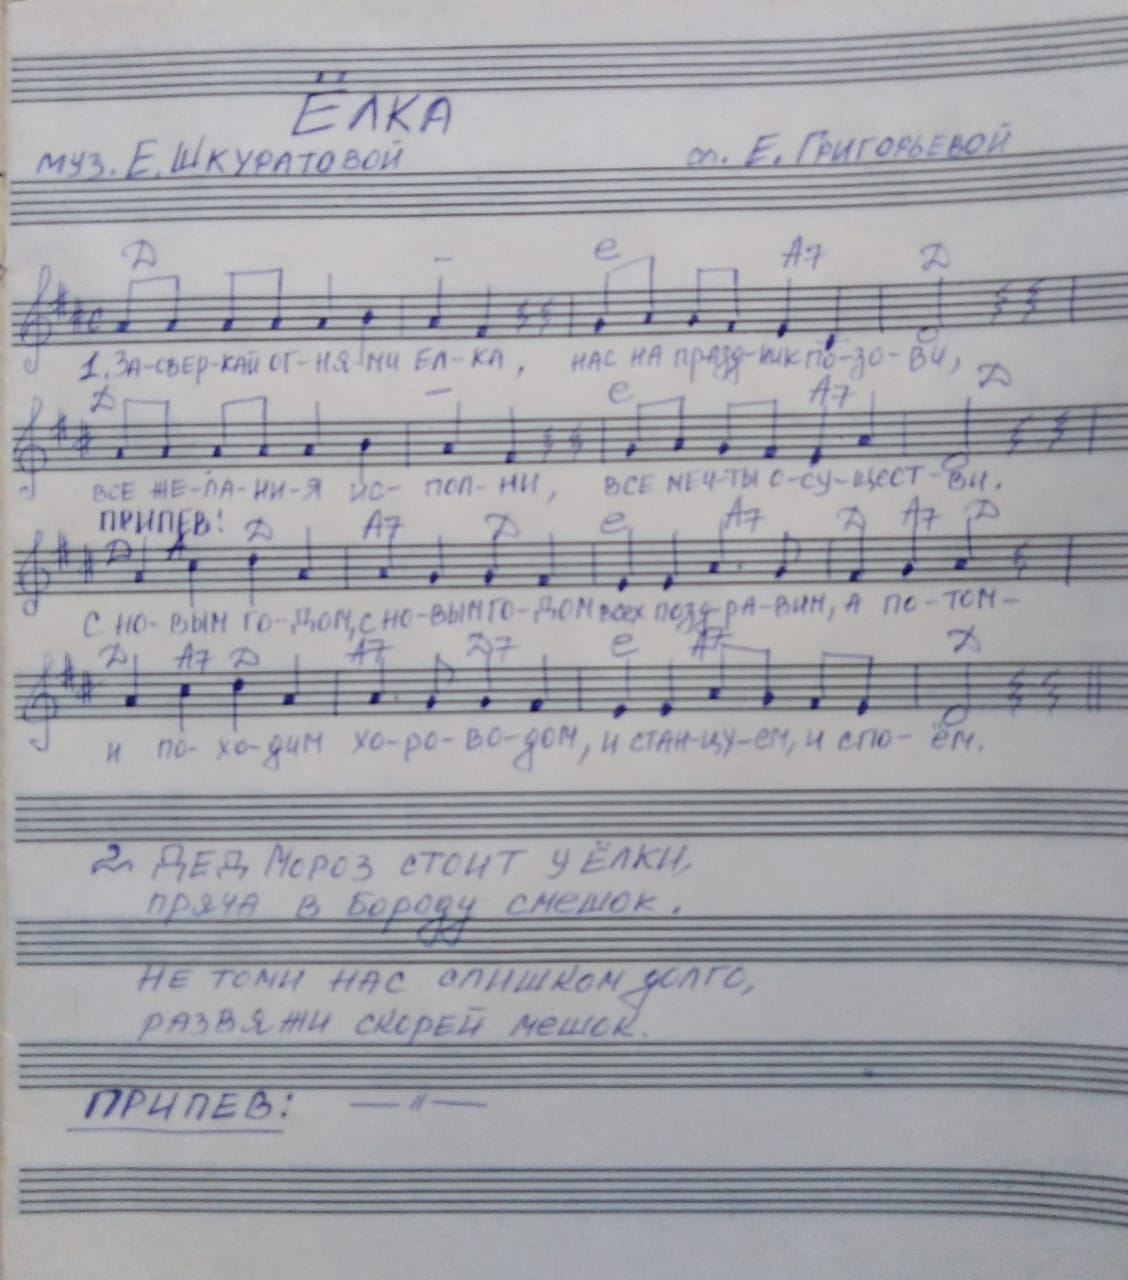 ЁЛКА
муз. Е. Шкуратовой сл. Е. Григорьевой
D e A7 D
1. За-свер-кай ог-ня-ми ёл-ка, нас на празд-ник по-зо-ви,
D e A7 D
все же-ла-ни-я ис-пол-ни, все меч-ты о-су-щест-ви.
ПРИПЕВ:
D A D A7 D e A7 D A7 D
С но-вым го-дом, с но-вым го-дом всех позд-ра-вим, а по-том-
D A7 D A7 D7 e A7 D
и по-хо-дим хо-ро-во-дом, и стан-цу-ем, и спо-ём.
2. Дед Мороз стоит у ёлки,
пряча в бороду смешок.
Не томи нас слишком долго,
развяжи скорей мешок.
ПРИПЕВ: — " —